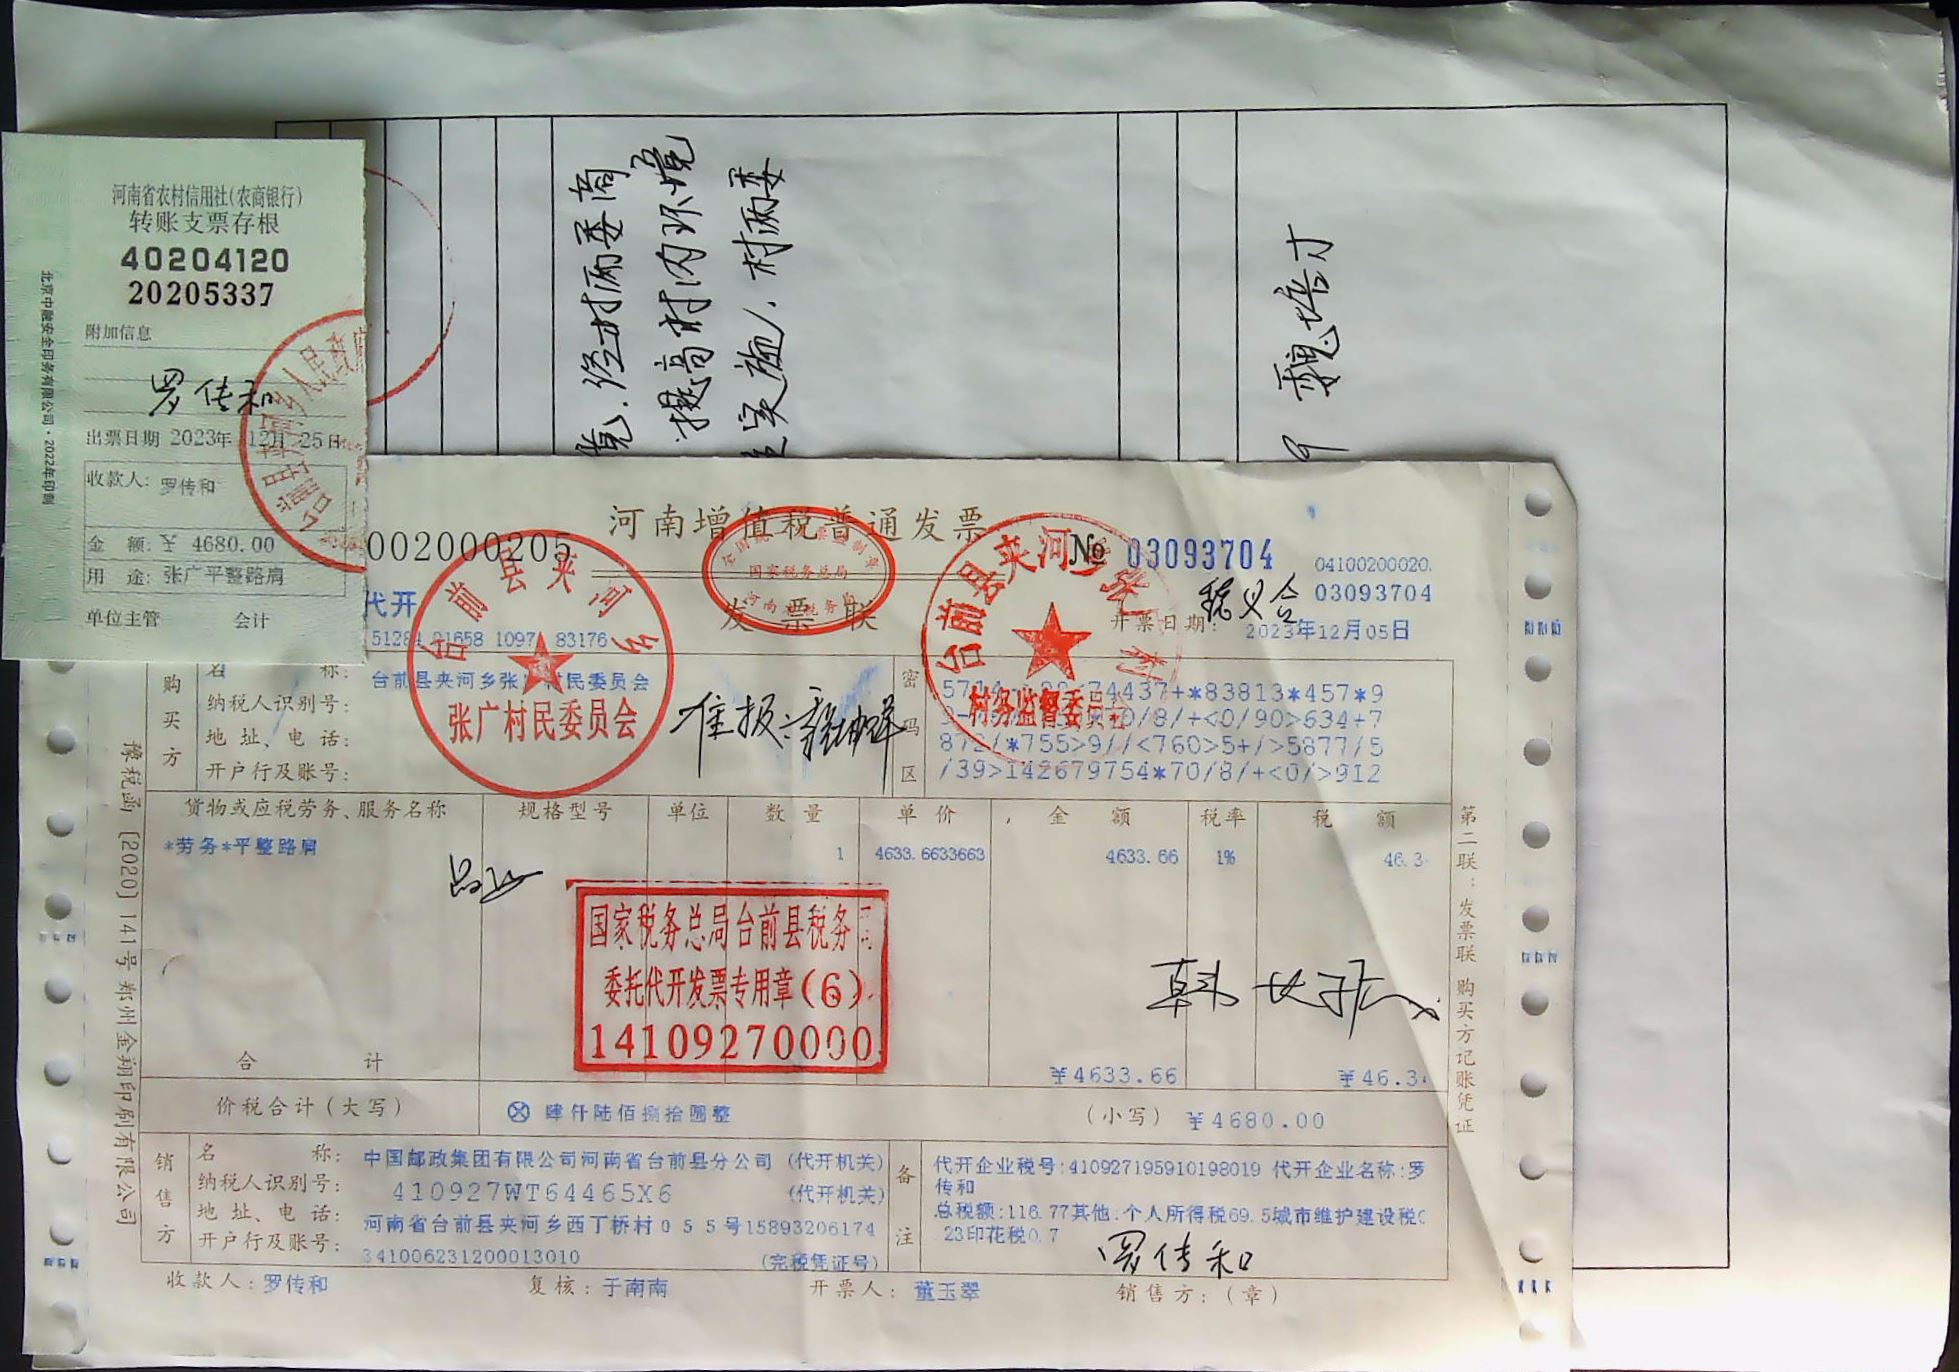 河南省农村信用社(农商银行)
转账支票存根
40204120
20205337
附加信息
罗传和
出票日期 2023年 12月 25日
收款人: 罗传和
金 额: ¥ 4680.00
用 途: 张广平整路肩
单位主管 会计
北京中融安全印务有限公司·2022年印制
经村两委商
提高村内环境
实施,村两委
魏培才
河南增值税普通发票
发票联
002000205
№ 03093704
04100200020
03093704
代开
开票日期: 2023年12月05日
国家税务总局
台前县夹河乡
张广村民委员会
村务监督委员会
购买方
名 称: 台前县夹河乡张广村民委员会
纳税人识别号:
地址、电话:
开户行及账号:
准报:
密码区
872/*755>9//<760>5+/>5877/5
/39>142679754*70/8/+<0/>912
货物或应税劳务、服务名称 规格型号 单位 数量 单价 金额 税率 税额
*劳务*平整路肩 1 4633.6633663 4633.66 1% 46.3
国家税务总局台前县税务
委托代开发票专用章(6)
14109270000
合 计 ¥4633.66 ¥46.3
价税合计(大写) ⊗ 肆仟陆佰捌拾圆整 (小写) ¥4680.00
销售方
名 称: 中国邮政集团有限公司河南省台前县分公司 (代开机关)
纳税人识别号: 410927WT64465X6 (代开机关)
地址、电话: 河南省台前县夹河乡西丁桥村055号15893206174
开户行及账号: 341006231200013010 (完税凭证号)
备注
代开企业税号:410927195910198019 代开企业名称:罗
传和
总税额:116.77其他:个人所得税69.5城市维护建设税0
.23印花税0.7
罗传和
收款人: 罗传和 复核: 于南南 开票人: 董玉翠 销售方:(章)
第二联:发票联 购买方记账凭证
豫税函〔2020〕141号郑州金翔印刷有限公司